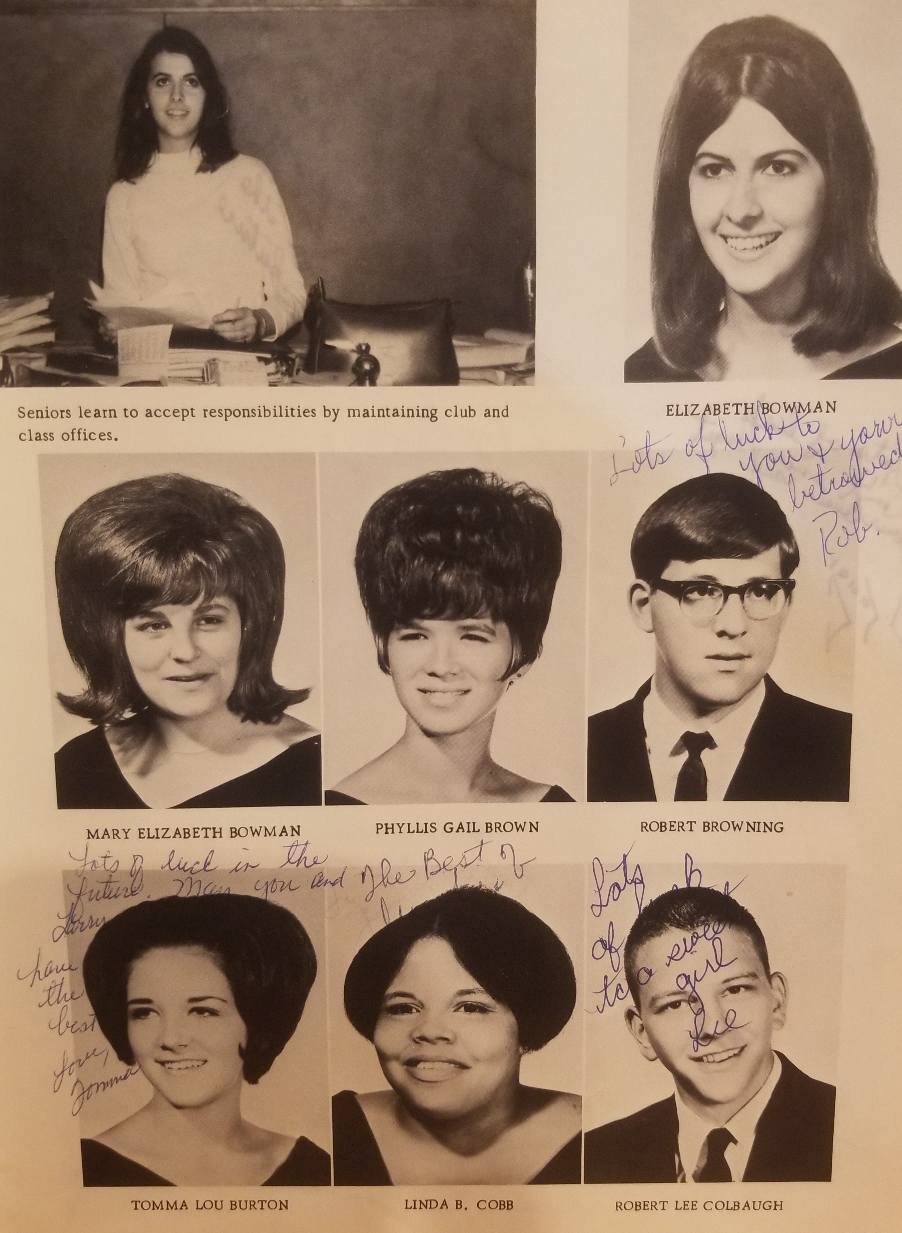 Seniors learn to accept responsibilities by maintaining club and
class offices.
ELIZABETH BOWMAN
Lots of luck to
you & your
betrothed
Rob.
MARY ELIZABETH BOWMAN
PHYLLIS GAIL BROWN
ROBERT BROWNING
Lots of luck in the
future. May you and
Larry
have
the
best
Love,
Tomma
The Best of
Lots
of luck
to a sweet
girl
Lee
TOMMA LOU BURTON
LINDA B. COBB
ROBERT LEE COLBAUGH